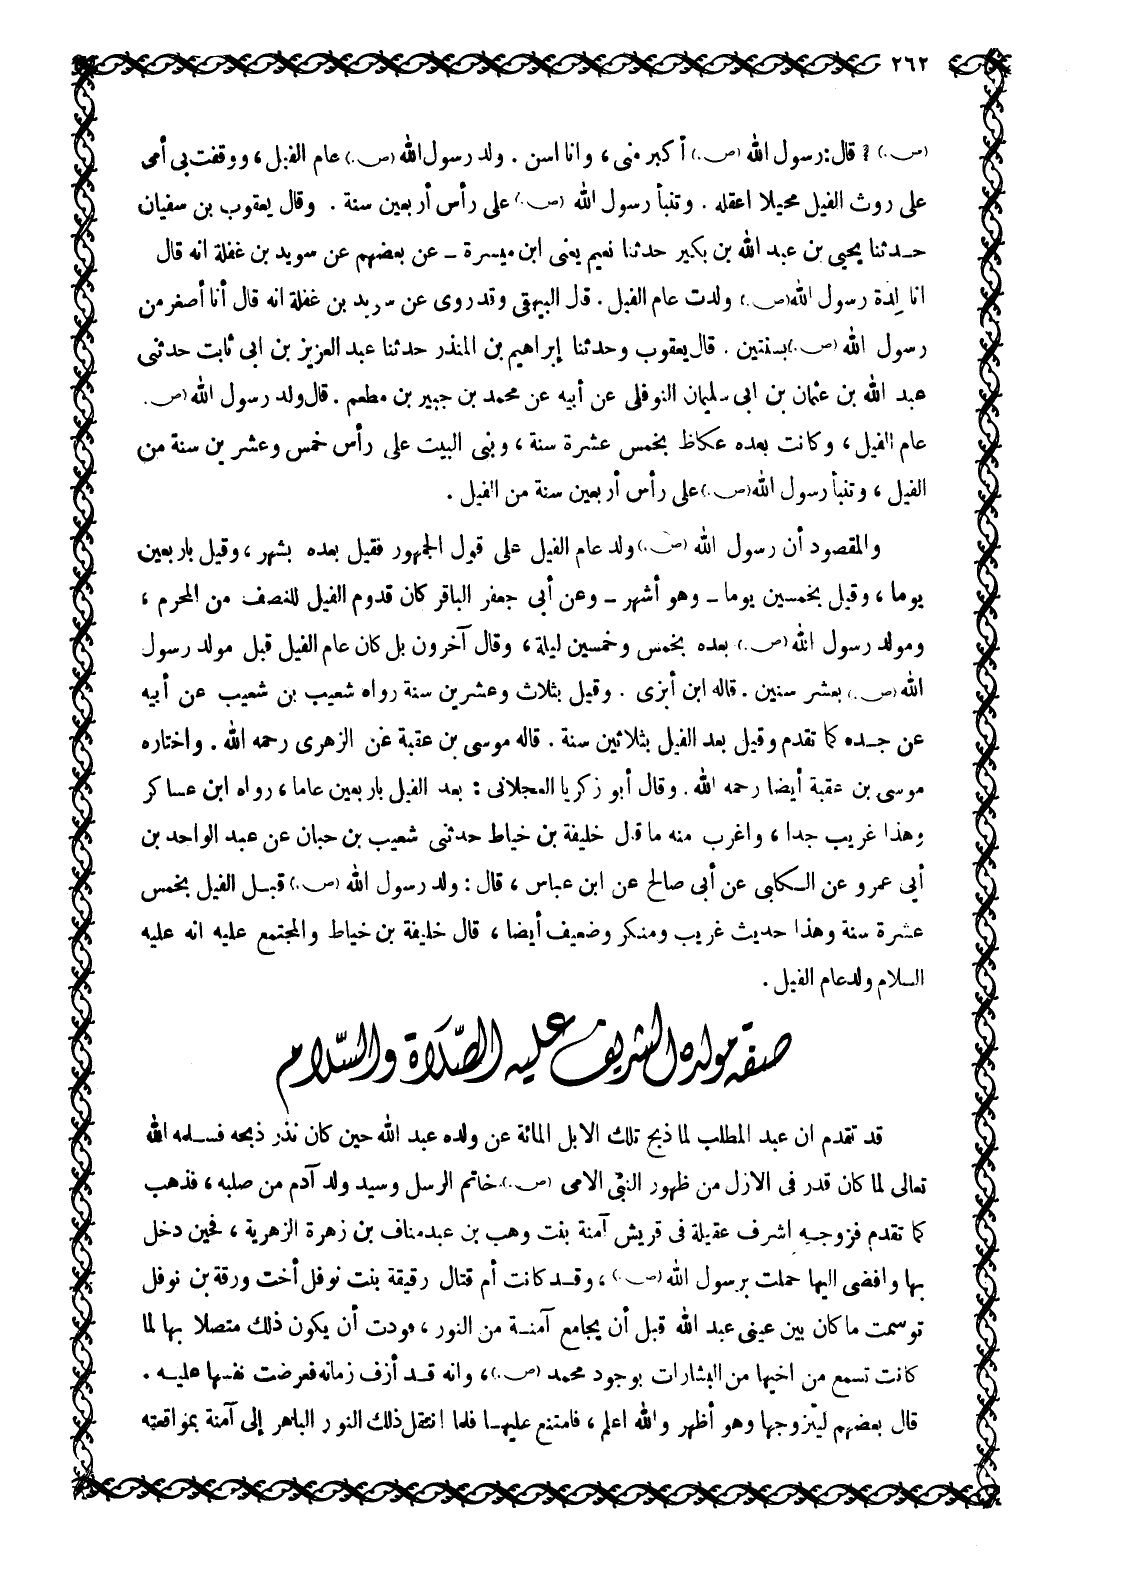 ٢٦٢
(ص) ؟ قال: رسول الله (ص) أكبر منى ، وانا اسن . ولد رسول الله (ص) عام الفيل ، ووقفت بى أمى
على روث الفيل محيلا اعقله . وتنبأ رسول الله (ص) على رأس أربعين سنة . وقال يعقوب بن سفيان
حدثنا يحيى بن عبد الله بن بكير حدثنا نعيم يعنى ابن ميسرة ـ عن بعضهم عن سويد بن غفلة انه قال
انا لِدة رسول الله (ص) ولدت عام الفيل . قال البيهقى وقد روى عن سويد بن غفلة انه قال أنا أصغر من
رسول الله (ص) بسنتين . قال يعقوب وحدثنا إبراهيم بن المنذر حدثنا عبد العزيز بن ابى ثابت حدثنى
عبد الله بن عثمان بن ابى سليمان النوفلى عن أبيه عن محمد بن جبير بن مطعم . قال ولد رسول الله (ص)
عام الفيل ، وكانت بعده عكاظ بخمس عشرة سنة ، وبنى البيت على رأس خمس وعشرين سنة من
الفيل ، وتنبأ رسول الله (ص) على رأس أربعين سنة من الفيل .
والمقصود أن رسول الله (ص) ولد عام الفيل على قول الجمهور فقيل بعده بشهر ، وقيل باربعين
يوما ، وقيل بخمسين يوما ـ وهو أشهر ـ وعن أبى جعفر الباقر كان قدوم الفيل للنصف من المحرم ،
ومولد رسول الله (ص) بعده بخمس وخمسين ليلة ، وقال آخرون بل كان عام الفيل قبل مولد رسول
الله (ص) بعشر سنين . قاله ابن أبزى . وقيل بثلاث وعشرين سنة رواه شعيب بن شعيب عن أبيه
عن جده كما تقدم وقيل بعد الفيل بثلاثين سنة . قاله موسى بن عقبة عن الزهرى رحمه الله . واختاره
موسى بن عقبة أيضا رحمه الله . وقال أبو زكريا العجلانى : بعد الفيل باربعين عاما ، رواه ابن عساكر
وهذا غريب جدا ، واغرب منه ما قال خليفة بن خياط حدثنى شعيب بن حبان عن عبد الواحد بن
أبي عمرو عن الكلبى عن أبى صالح عن ابن عباس ، قال : ولد رسول الله (ص) قبل الفيل بخمس
عشرة سنة وهذا حديث غريب ومنكر وضعيف أيضا ، قال خليفة بن خياط والمجتمع عليه انه عليه
السلام ولد عام الفيل .
صفة مولده الشريف عليه الصّلاة والسّلام
قد تقدم ان عبد المطلب لما ذبح تلك الابل المائة عن ولده عبد الله حين كان نذر ذبحه فسلمه الله
تعالى لما كان قدر فى الازل من ظهور النبيّ الامى (ص) خاتم الرسل وسيد ولد آدم من صلبه ، فذهب
كما تقدم فزوجه اشرف عقيلة فى قريش آمنة بنت وهب بن عبد مناف بن زهرة الزهرية ، فحين دخل
بها وافضى اليها حملت برسول الله (ص) ، وقد كانت أم قتال رقيقة بنت نوفل أخت ورقة بن نوفل
توسمت ما كان بين عينى عبد الله قبل أن يجامع آمنة من النور ، فودت أن يكون ذلك متصلا بها لما
كانت تسمع من اخيها من البشارات بوجود محمد (ص) ، وانه قد أزف زمانه فعرضت نفسها عليه .
قال بعضهم ليتزوجها وهو أظهر والله اعلم ، فامتنع عليها فلما انتقل ذلك النور الباهر إلى آمنة بمواقعته